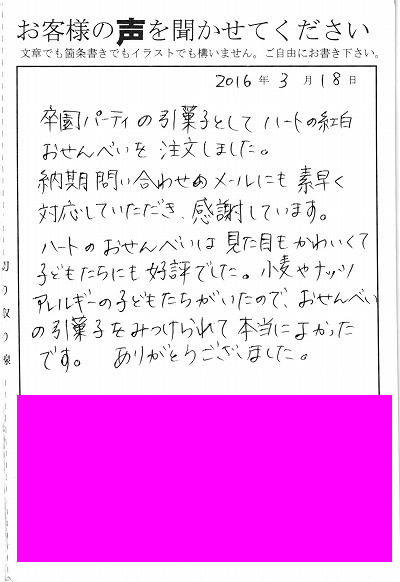 お客様の声を聞かせてください
文章でも箇条書きでもイラストでも構いません。ご自由にお書き下さい。
2016年3月18日
卒園パーティの引菓子としてハートの紅白
おせんべいを注文しました。
納期問い合わせのメールにも素早く
対応していただき、感謝しています。
ハートのおせんべいは見た目もかわいくて
子どもたちにも好評でした。小麦やナッツ
アレルギーの子どもたちがいたので、おせんべい
の引菓子をみつけられて本当によかった
です。 ありがとうございました。
切り取り線